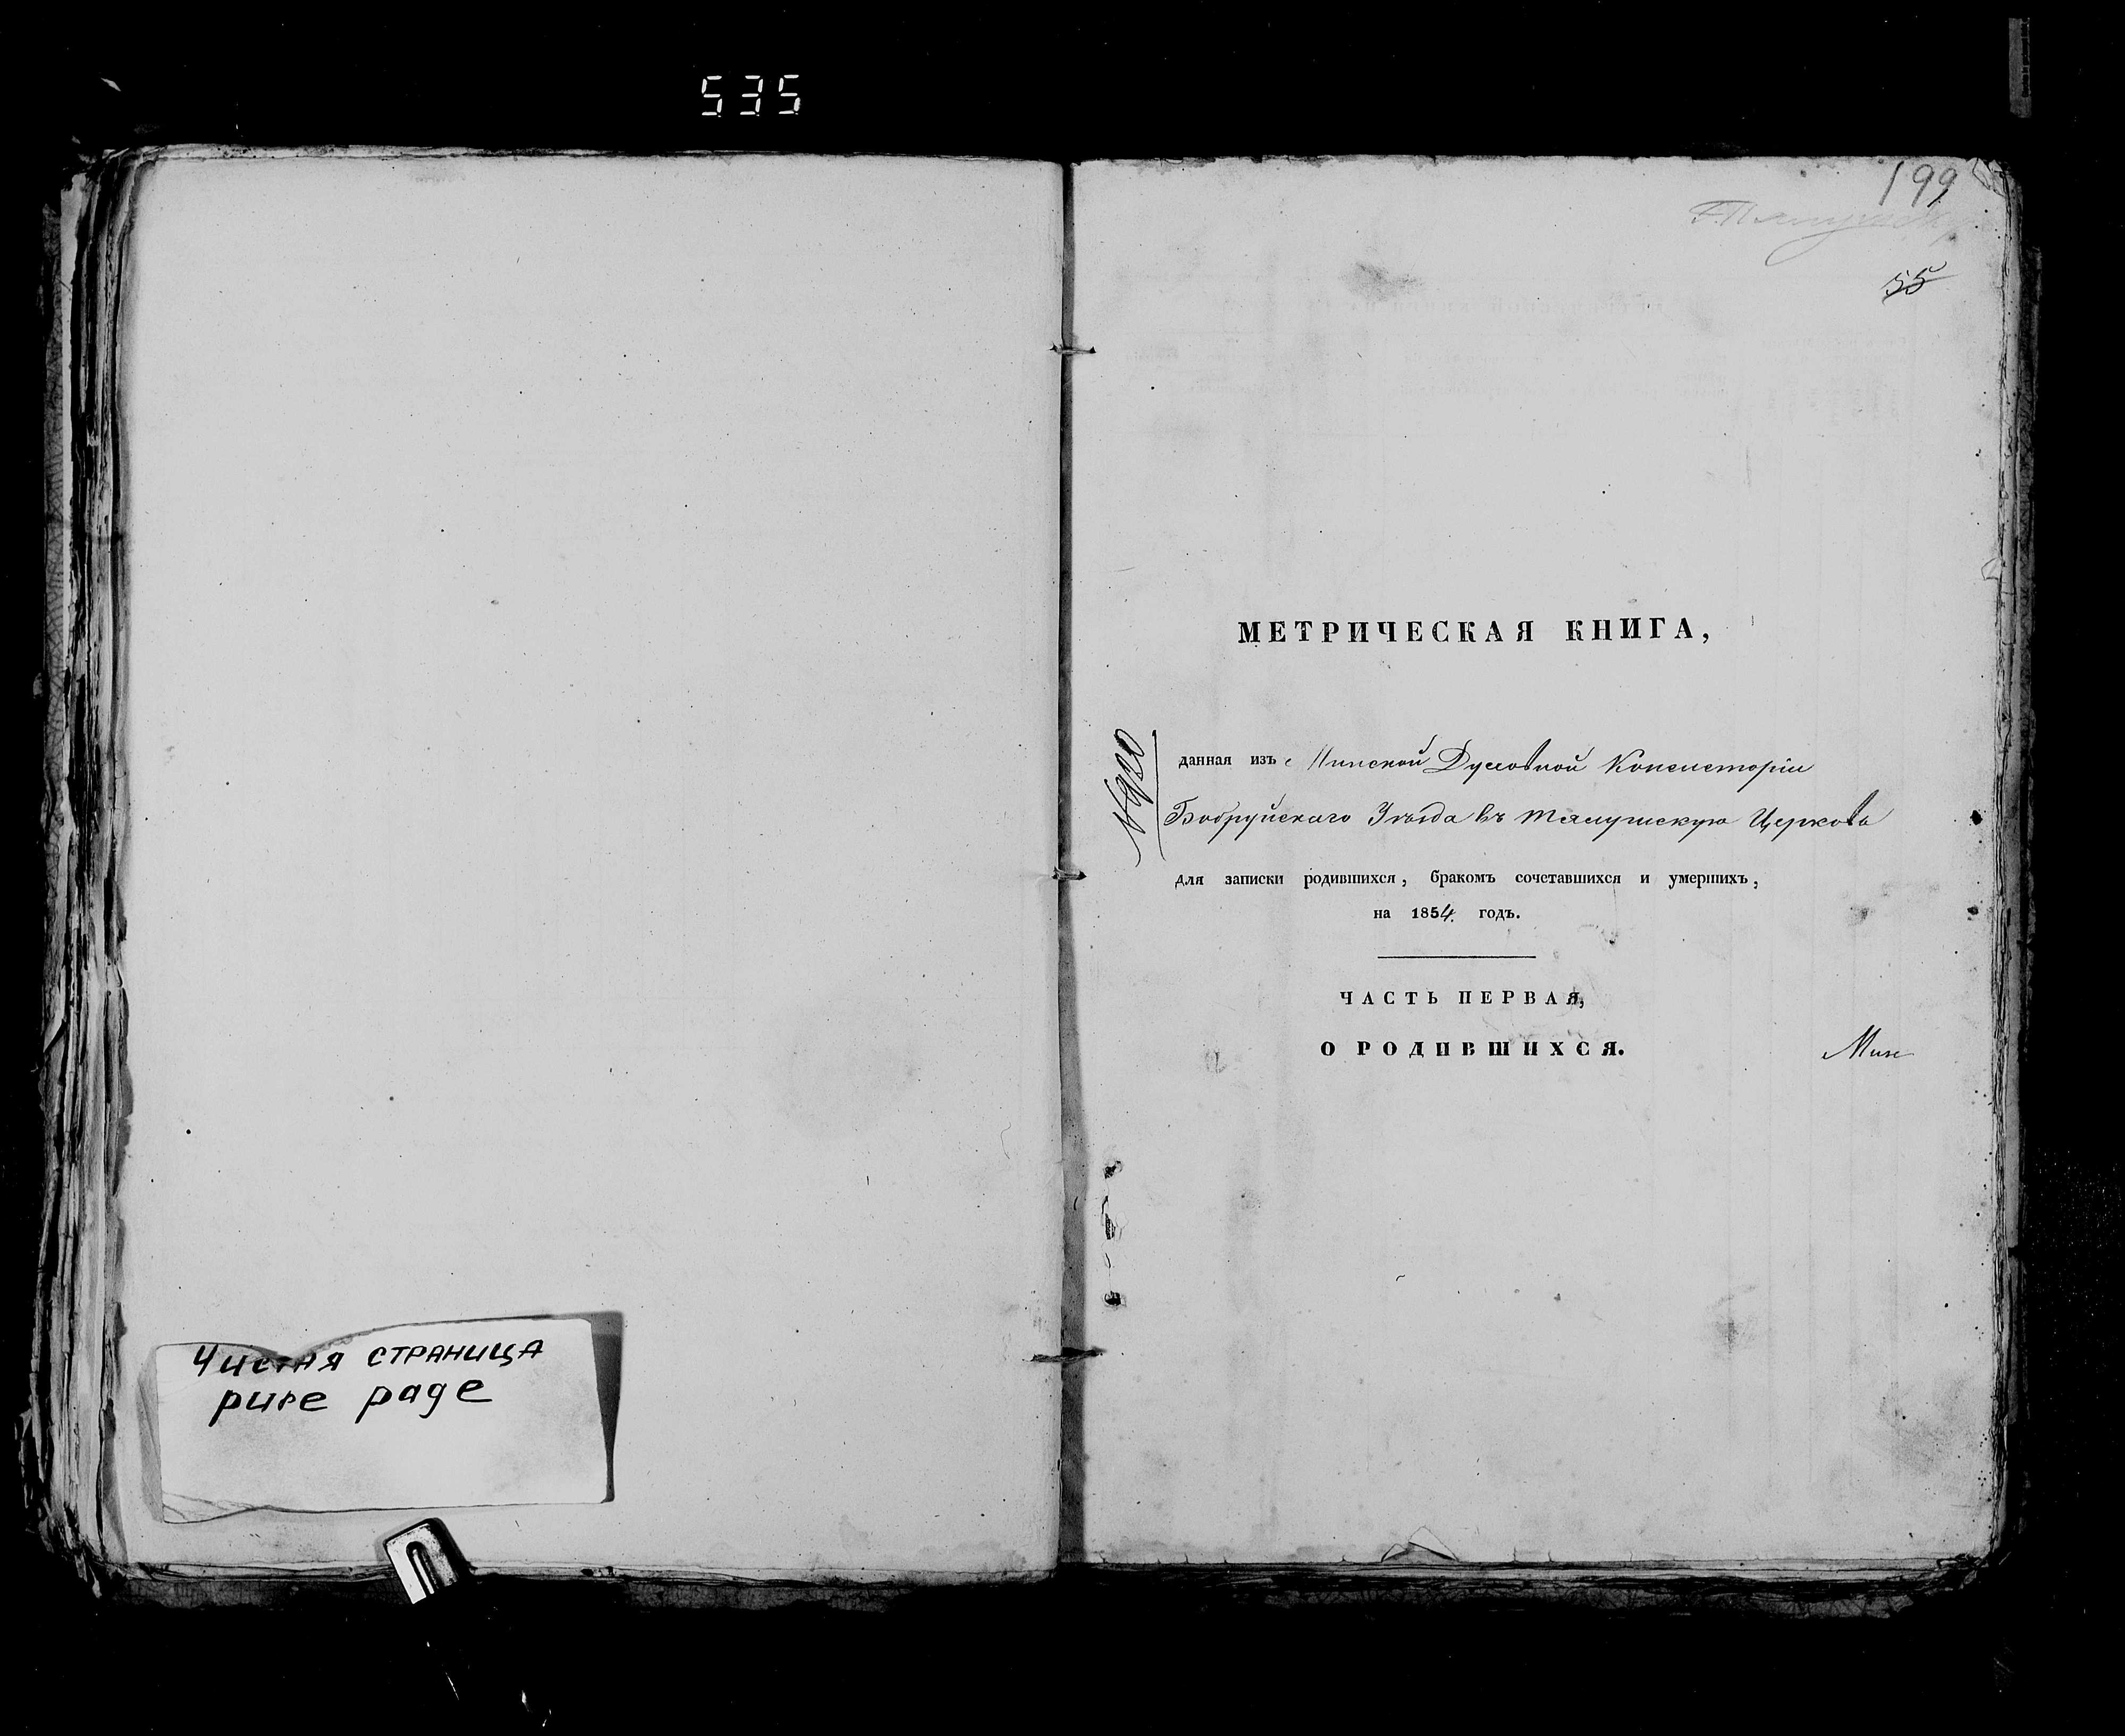 535
Чистая страница
pure page
199
55
МЕТРИЧЕСКАЯ КНИГА,
данная изъ Минской Духовной Консисторіи
Бобруйскаго Уѣзда въ Телушскую Церковь
для записки родившихся, бракомъ сочетавшихся и умершихъ,
на 1854 годъ.
ЧАСТЬ ПЕРВАЯ,
О РОДИВШИХСЯ.
Мин